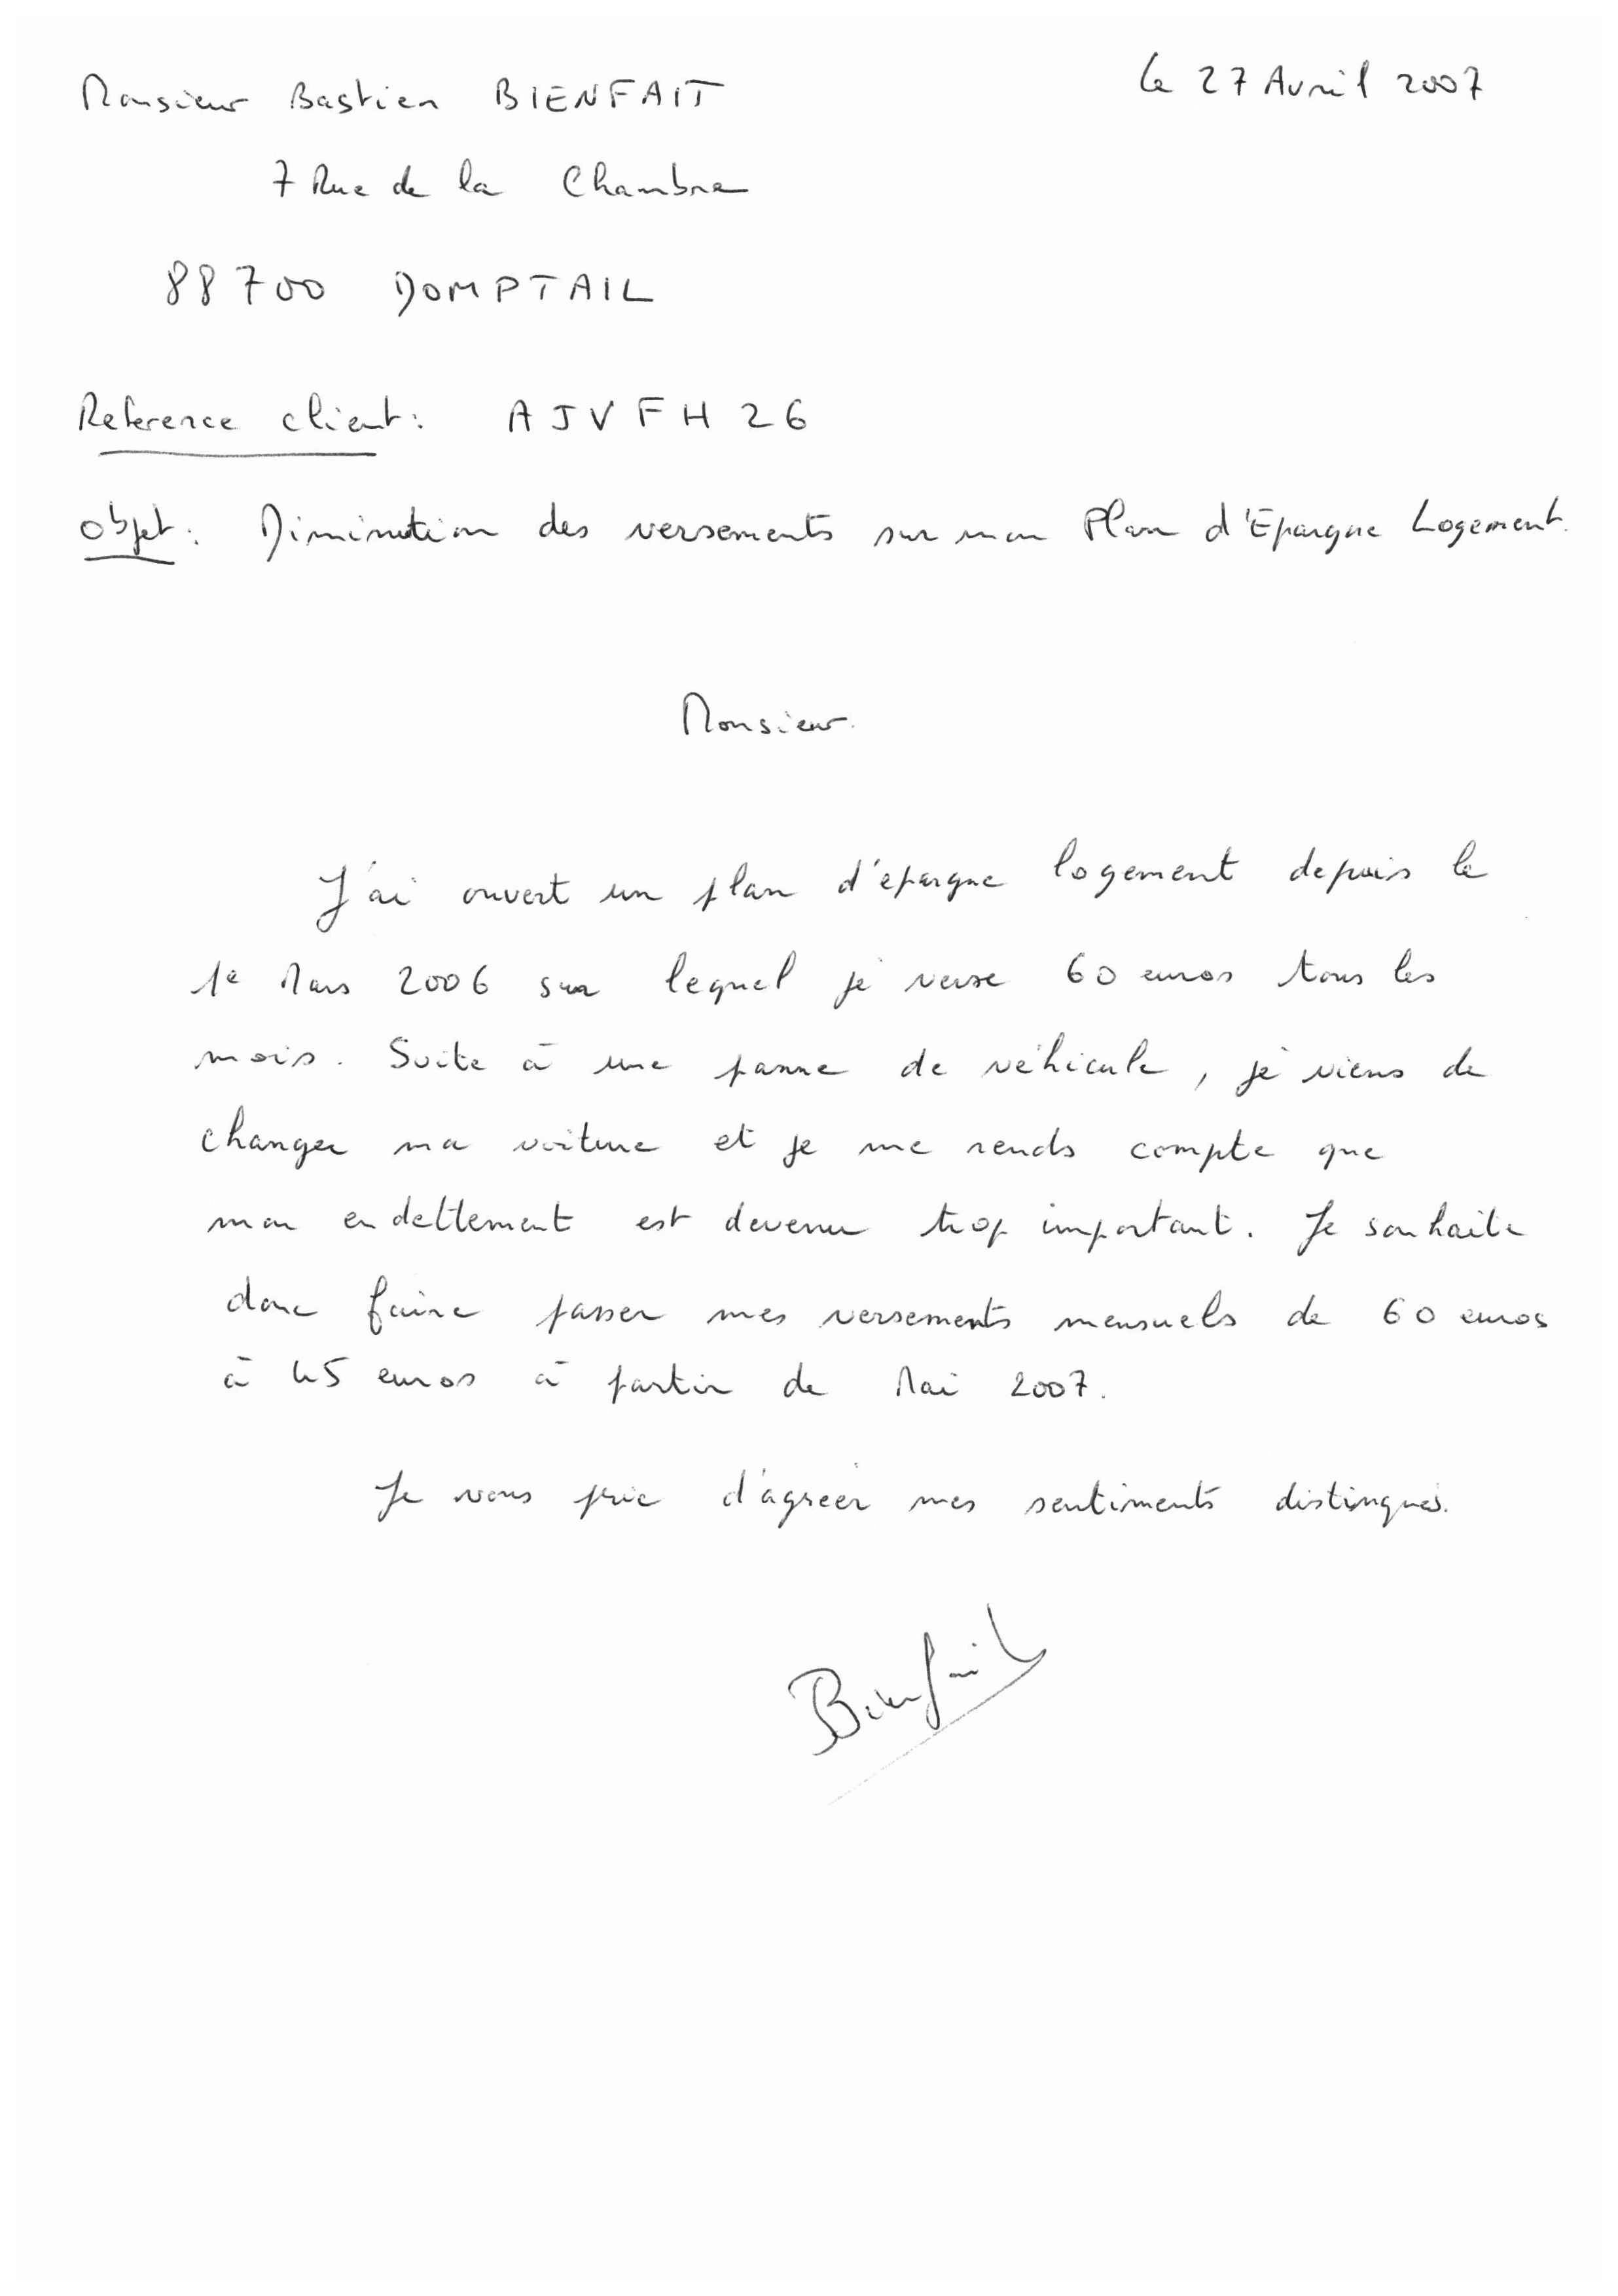 Monsieur Bastien BIENFAIT
Le 27 Avril 2007
7 Rue de la Chambre
88700 DOMPTAIL
Reference client : AJVFH26
Objet : Diminution des versements sur mon Plan d'Epargne Logement.
Monsieur.
J'ai ouvert un plan d'épargne logement depuis le
1e Mars 2006 sur lequel je verse 60 euros tous les
mois. Suite à une panne de véhicule, je viens de
changer ma voiture et je me rends compte que
mon endettement est devenu trop important. Je souhaite
donc faire passer mes versements mensuels de 60 euros
à 45 euros à partir de Mai 2007.
Je vous prie d'agréer mes sentiments distingués.
Bienfait